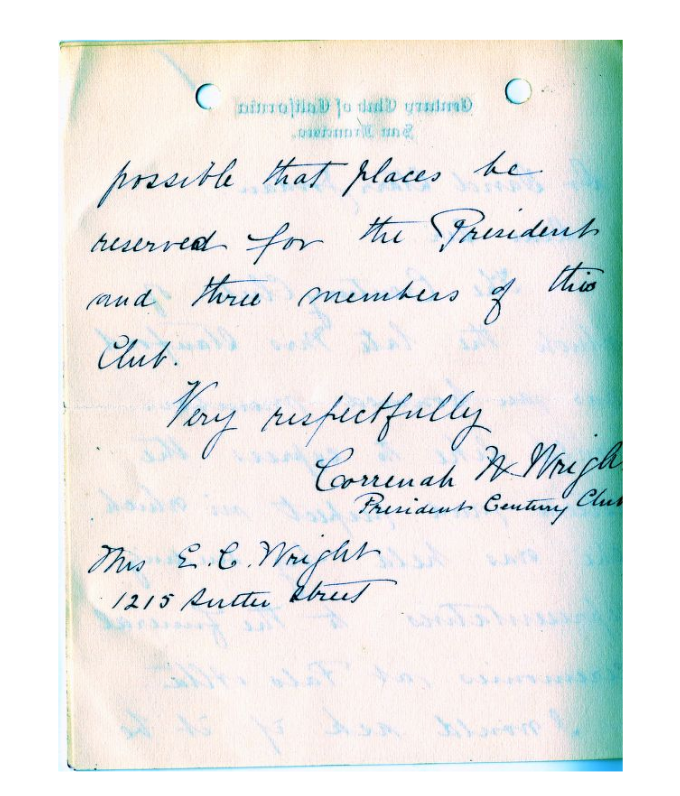 Century Club of California
San Francisco.
possible that places be
reserved for the President
and three members of this
Club.
Very respectfully
Correnah W Wrigh
President Century Club
Mrs E. C. Wright
1215 Sutter Street